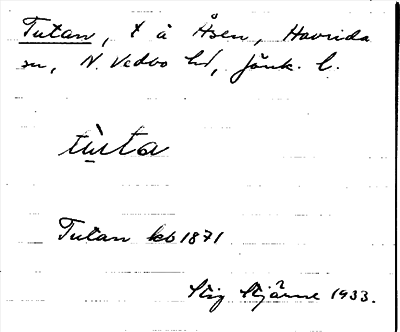 Tutan, t å Åsen, Havrida
sn, N. Vedbo hd, Jönk. l.
tu̇̀ta
Tutan kb 1871
Stig Stjärne 1933.